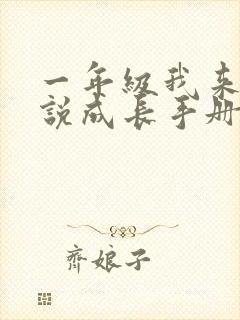 一年级我来
说成长手册
齊娘子